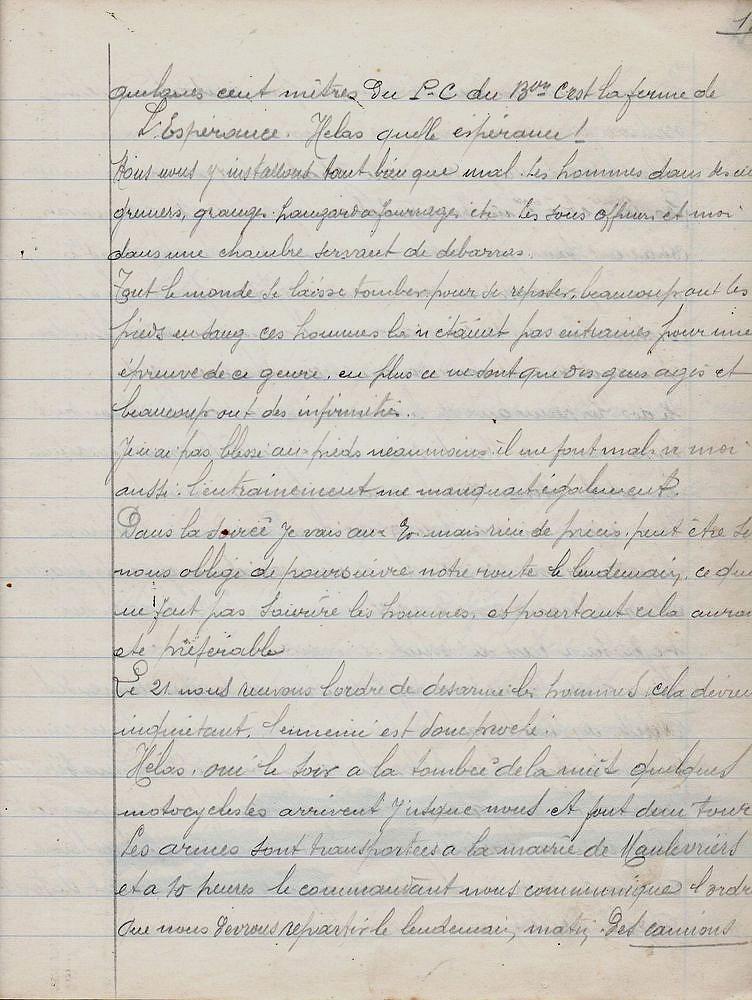 1
quelques cent mètres du P-C du Bon C'est la ferme de
L'Espérance. Helas quelle espérance!
Nous nous y installons tant bien que mal. Les hommes dans des
greniers, granges hangards a fourrages etc. Les sous officiers et moi
dans une chambre servant de debarras.
Tout le monde se laisse tomber pour se reposer, beaucoup ont les
pieds en sang ces hommes la n'étaient pas entrainés pour une
épreuve de ce genre. en plus ce ne sont que des gens agés et
beaucoup ont des infirmités.
Je n'ai pas blessé aux pieds néanmoins il me font mal a moi
aussi. l'entrainement me manquait également.
Dans la soirée Je vais aux mais rien de précis. peut être
nous obligé de poursuivre notre route le lendemain, ce qui
ne fait pas sourire les hommes. et pourtant cela aurai
eté préférable
Le 21 nous recevons l'ordre de desarmé les hommes, cela devien
inquiétant, l'ennemi est donc proche.
Helas, oui le soir a la tombée de la nuit quelques
motocyclistes arrivent Jusque nous. et font demi tour
Les armes sont transportées a la mairie de Maulevriers
et a 10 heures le commandant nous communique l'ordr
Que nous devrons repartir le lendemain, matin. Des camions